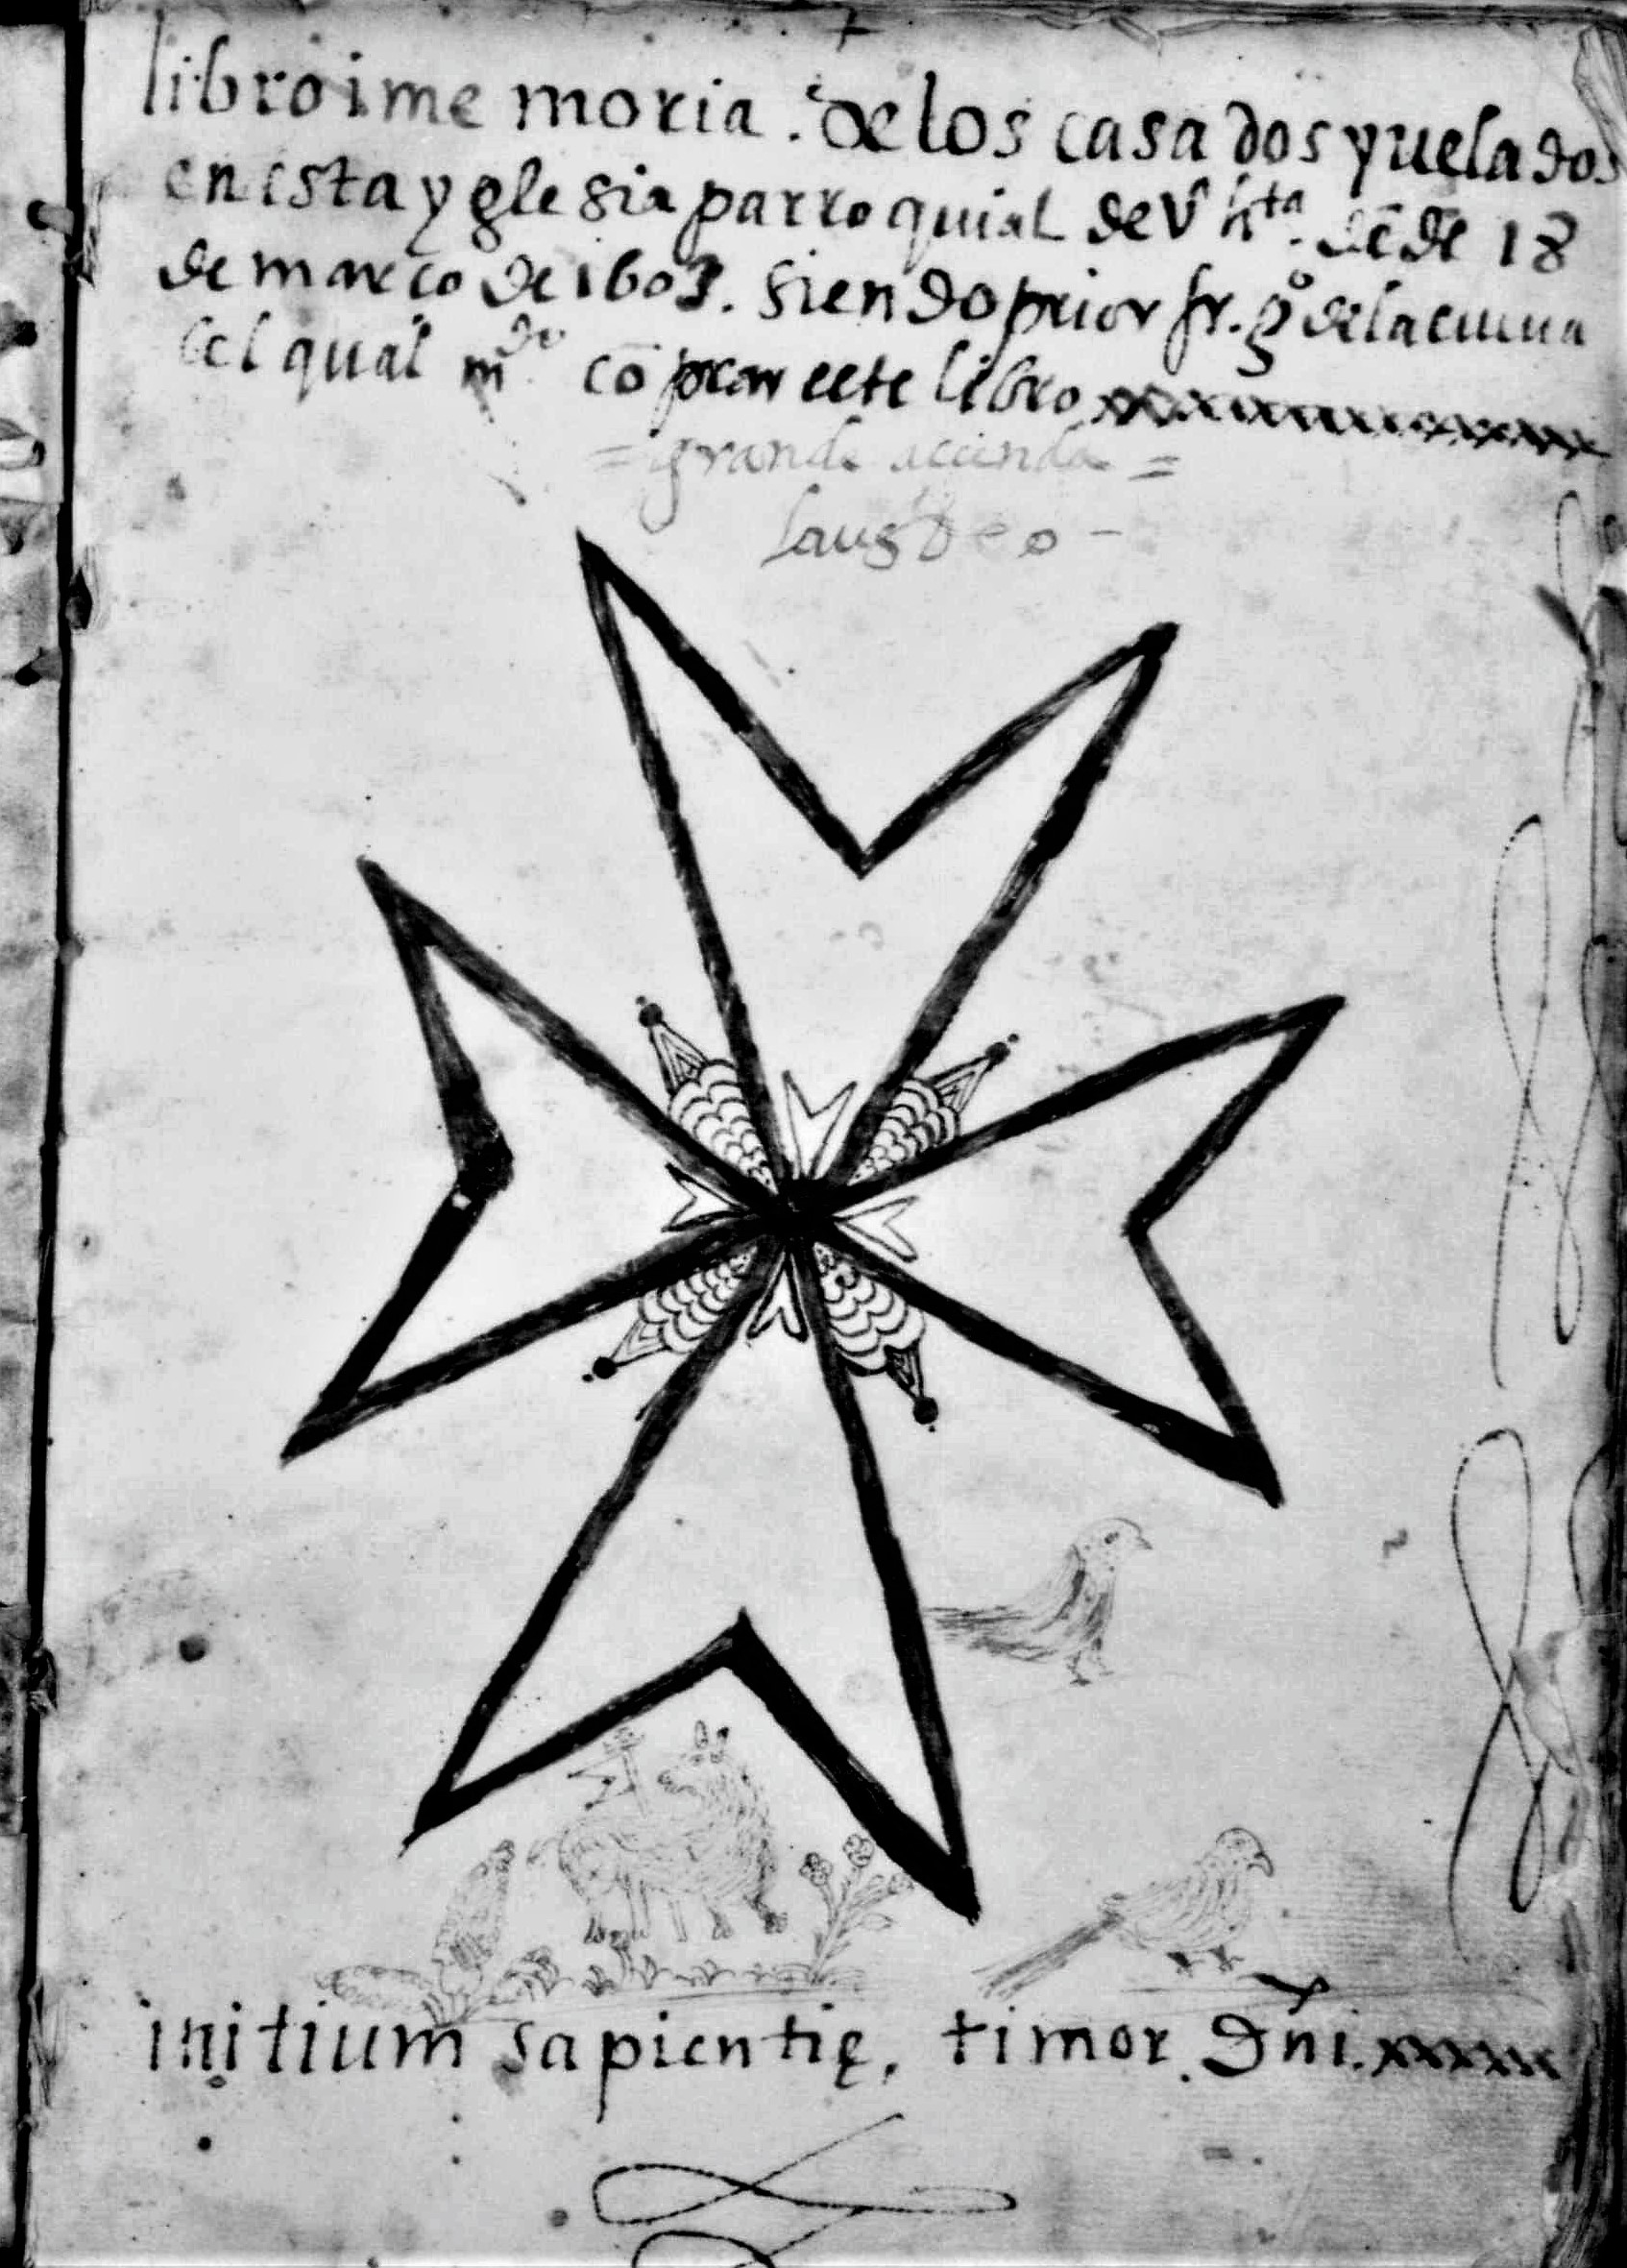 libro i me moria. de los casados y velados
en esta yglesia parroquial de V hta. dēde 18
de março de 1603. siendo prior fr. gº de la
el qual mdo cōprar este libro
= grande acienda =
laus Deo -
initium sapientię. timor. Dñi.